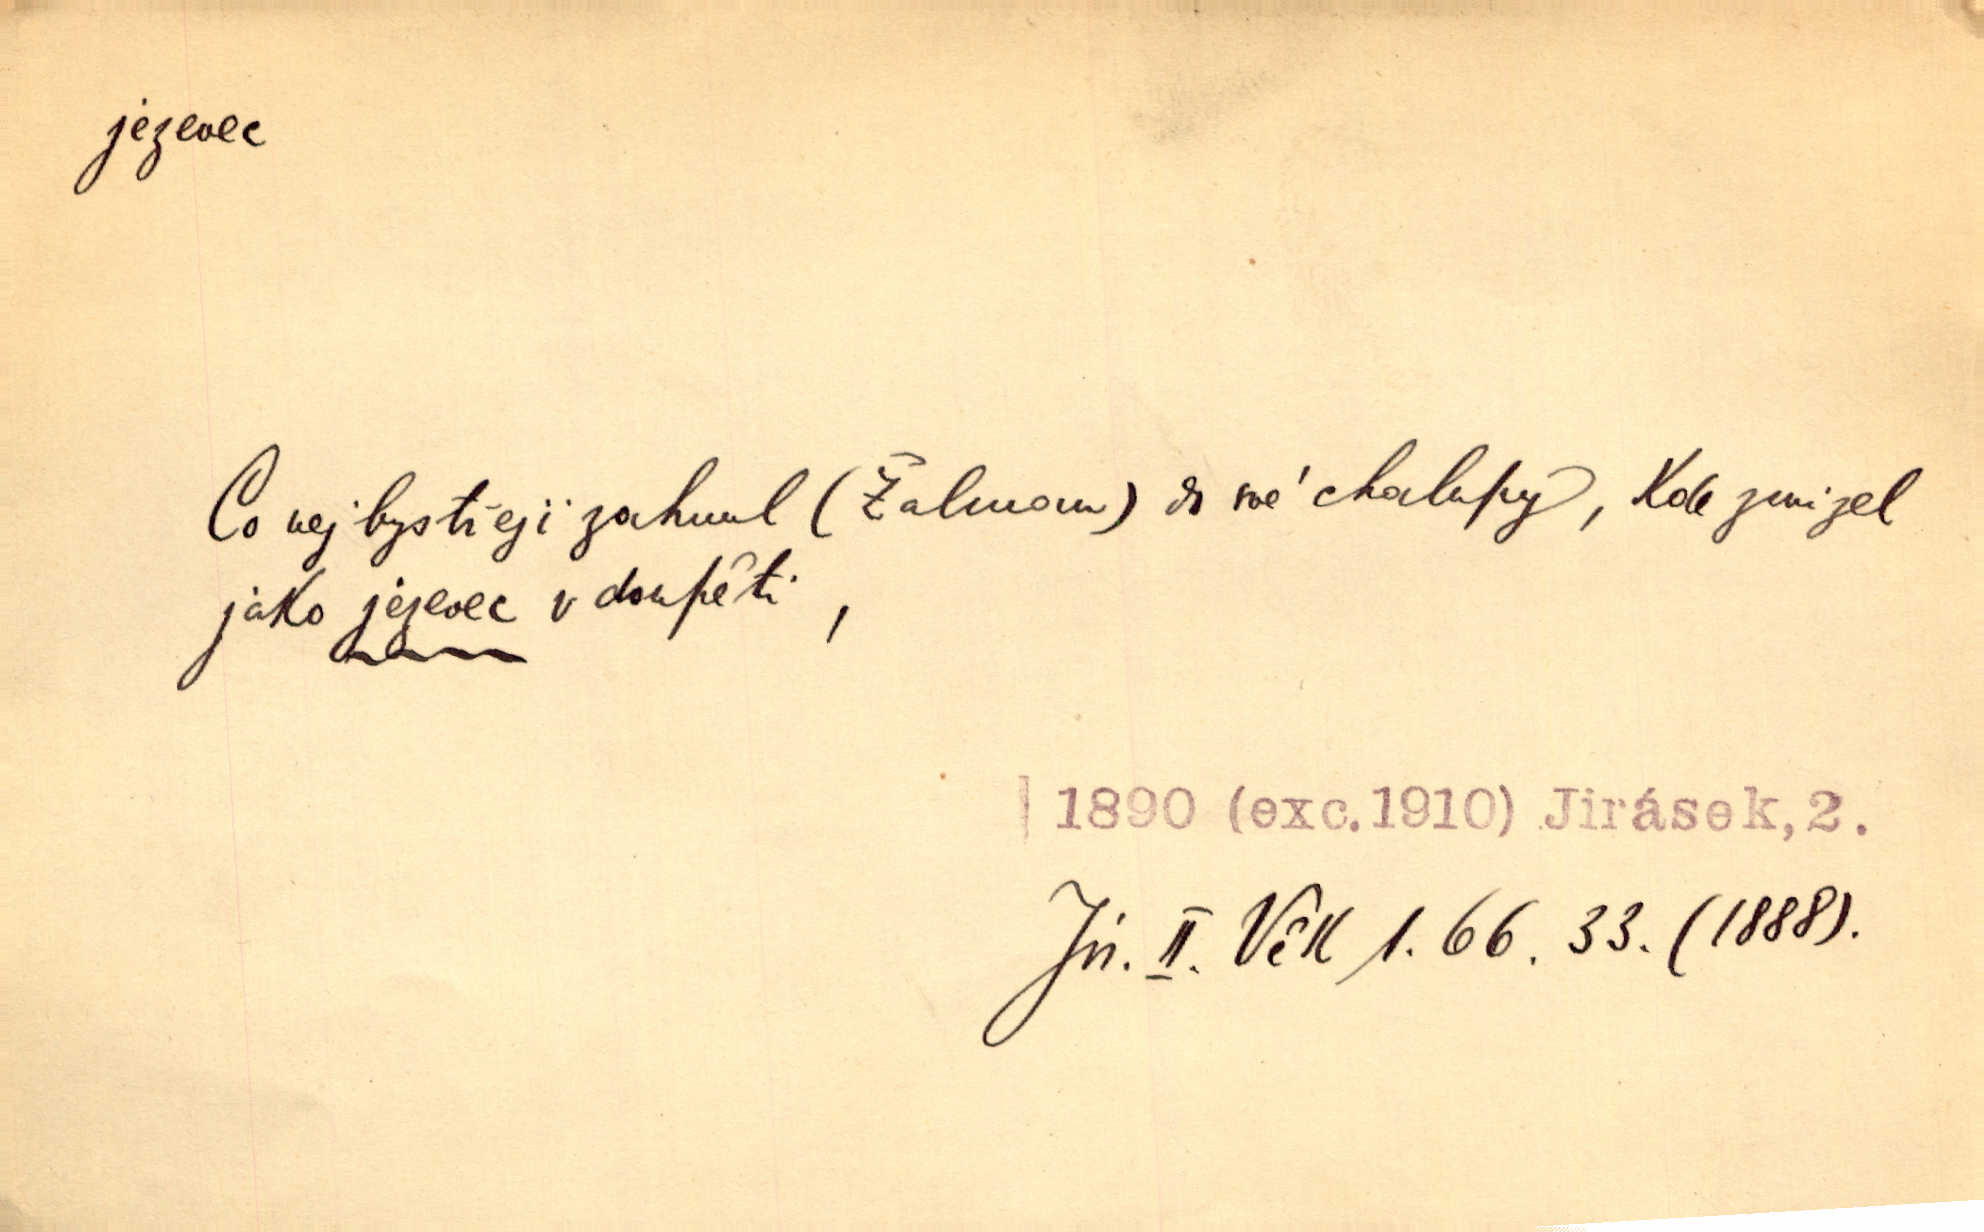 jezevec
Co nejbystřeji zahnul (Žalman) do své chalupy, kde zmizel
jako jezevec v doupěti,
1890 (exc.1910) Jirásek,2.
Jir. II. Věk 1. 66. 33. (1888).